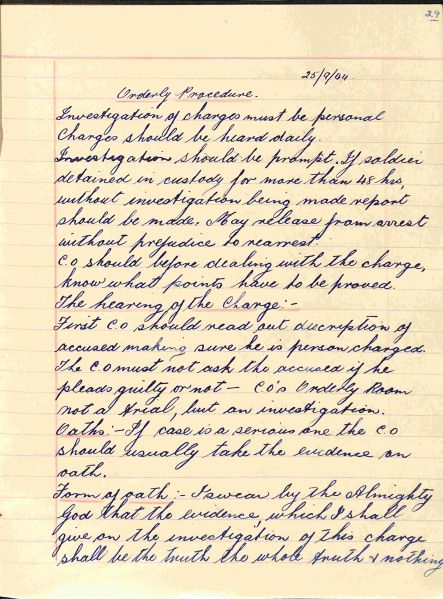 29
25/9/44.
Orderly Procedure.
Investigation of charges must be personal
Charges should be heard daily.
Investigation should be prompt. If soldier
detained in custody for more than 48 hrs,
without investigation being made report
should be made. May release from arrest
without prejudice to rearrest.
C.O should before dealing with the charge,
know what points have to be proved.
The hearing of the Charge:-
First C.O should read out discription of
accused making sure he is person charged.
The C.O must not ask the accused if he
pleads guilty or not - C.O's Orderly Room
not a trial, but an investigation.
Oaths:- If case is a serious one the C.O
should usually take the evidence on
oath.
Form of oath:- I swear by the Almighty
God that the evidence, which I shall
give on the investigation of this charge
shall be the truth the whole truth & nothing